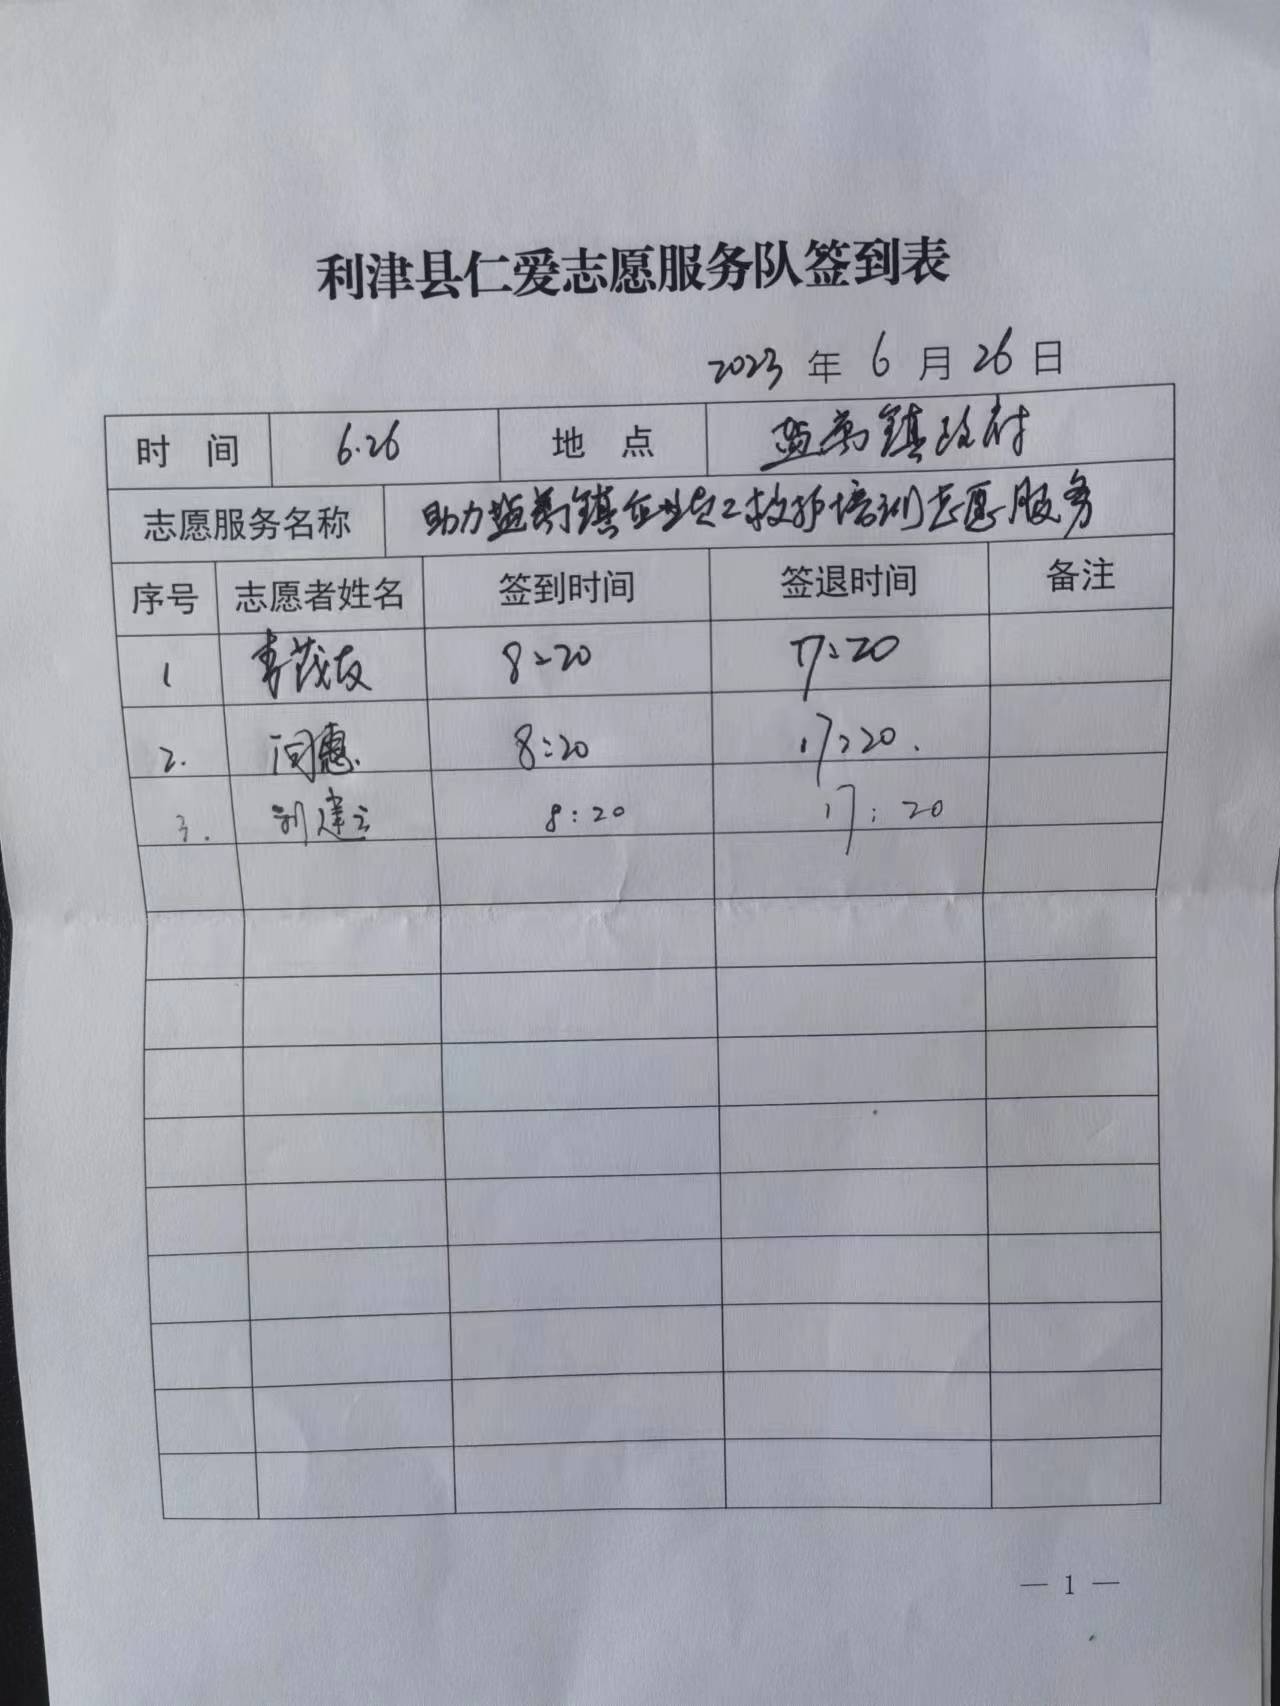 利津县仁爱志愿服务队签到表
2023 年 6 月 26 日
时 间 6.26 地 点 盐窝镇政府
志愿服务名称 助力盐窝镇企业职工救护培训志愿服务
序号 志愿者姓名 签到时间 签退时间 备注
1 李茂友 8:20 17:20
2. 闫惠 8:20 17:20.
3. 刘建云 8:20 17:20
— 1 —